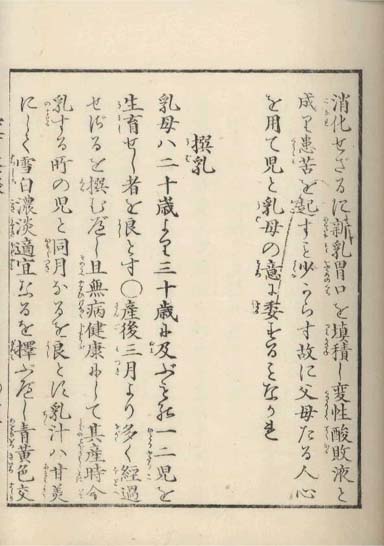 消化せざるに新乳胃口を填積し変性酸敗液と
成り患苦を起すこと少からす故に父母たる人心
を用て児と乳母の意に委することなかれ
撰乳
乳母ハ二十歳より三十歳に及び一二児を
生育せし者を良とす〇産後三月より多く経過
せざるを撰むべし且無病健康にして其産時今
乳する所の児と同月なるを良とす乳汁ハ甘美
にして雪白濃淡適宜なるを擇ぶべし青黄色交